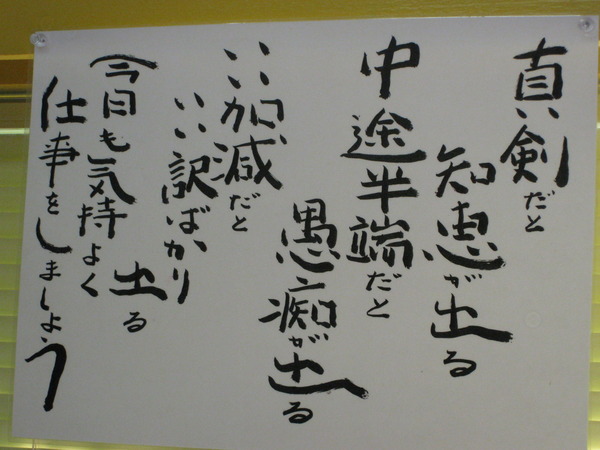 真剣だと
知恵が出る
中途半端だと
愚痴が出る
いい加減だと
いい訳ばかり
出る
今日も気持よく
仕事をしましょう